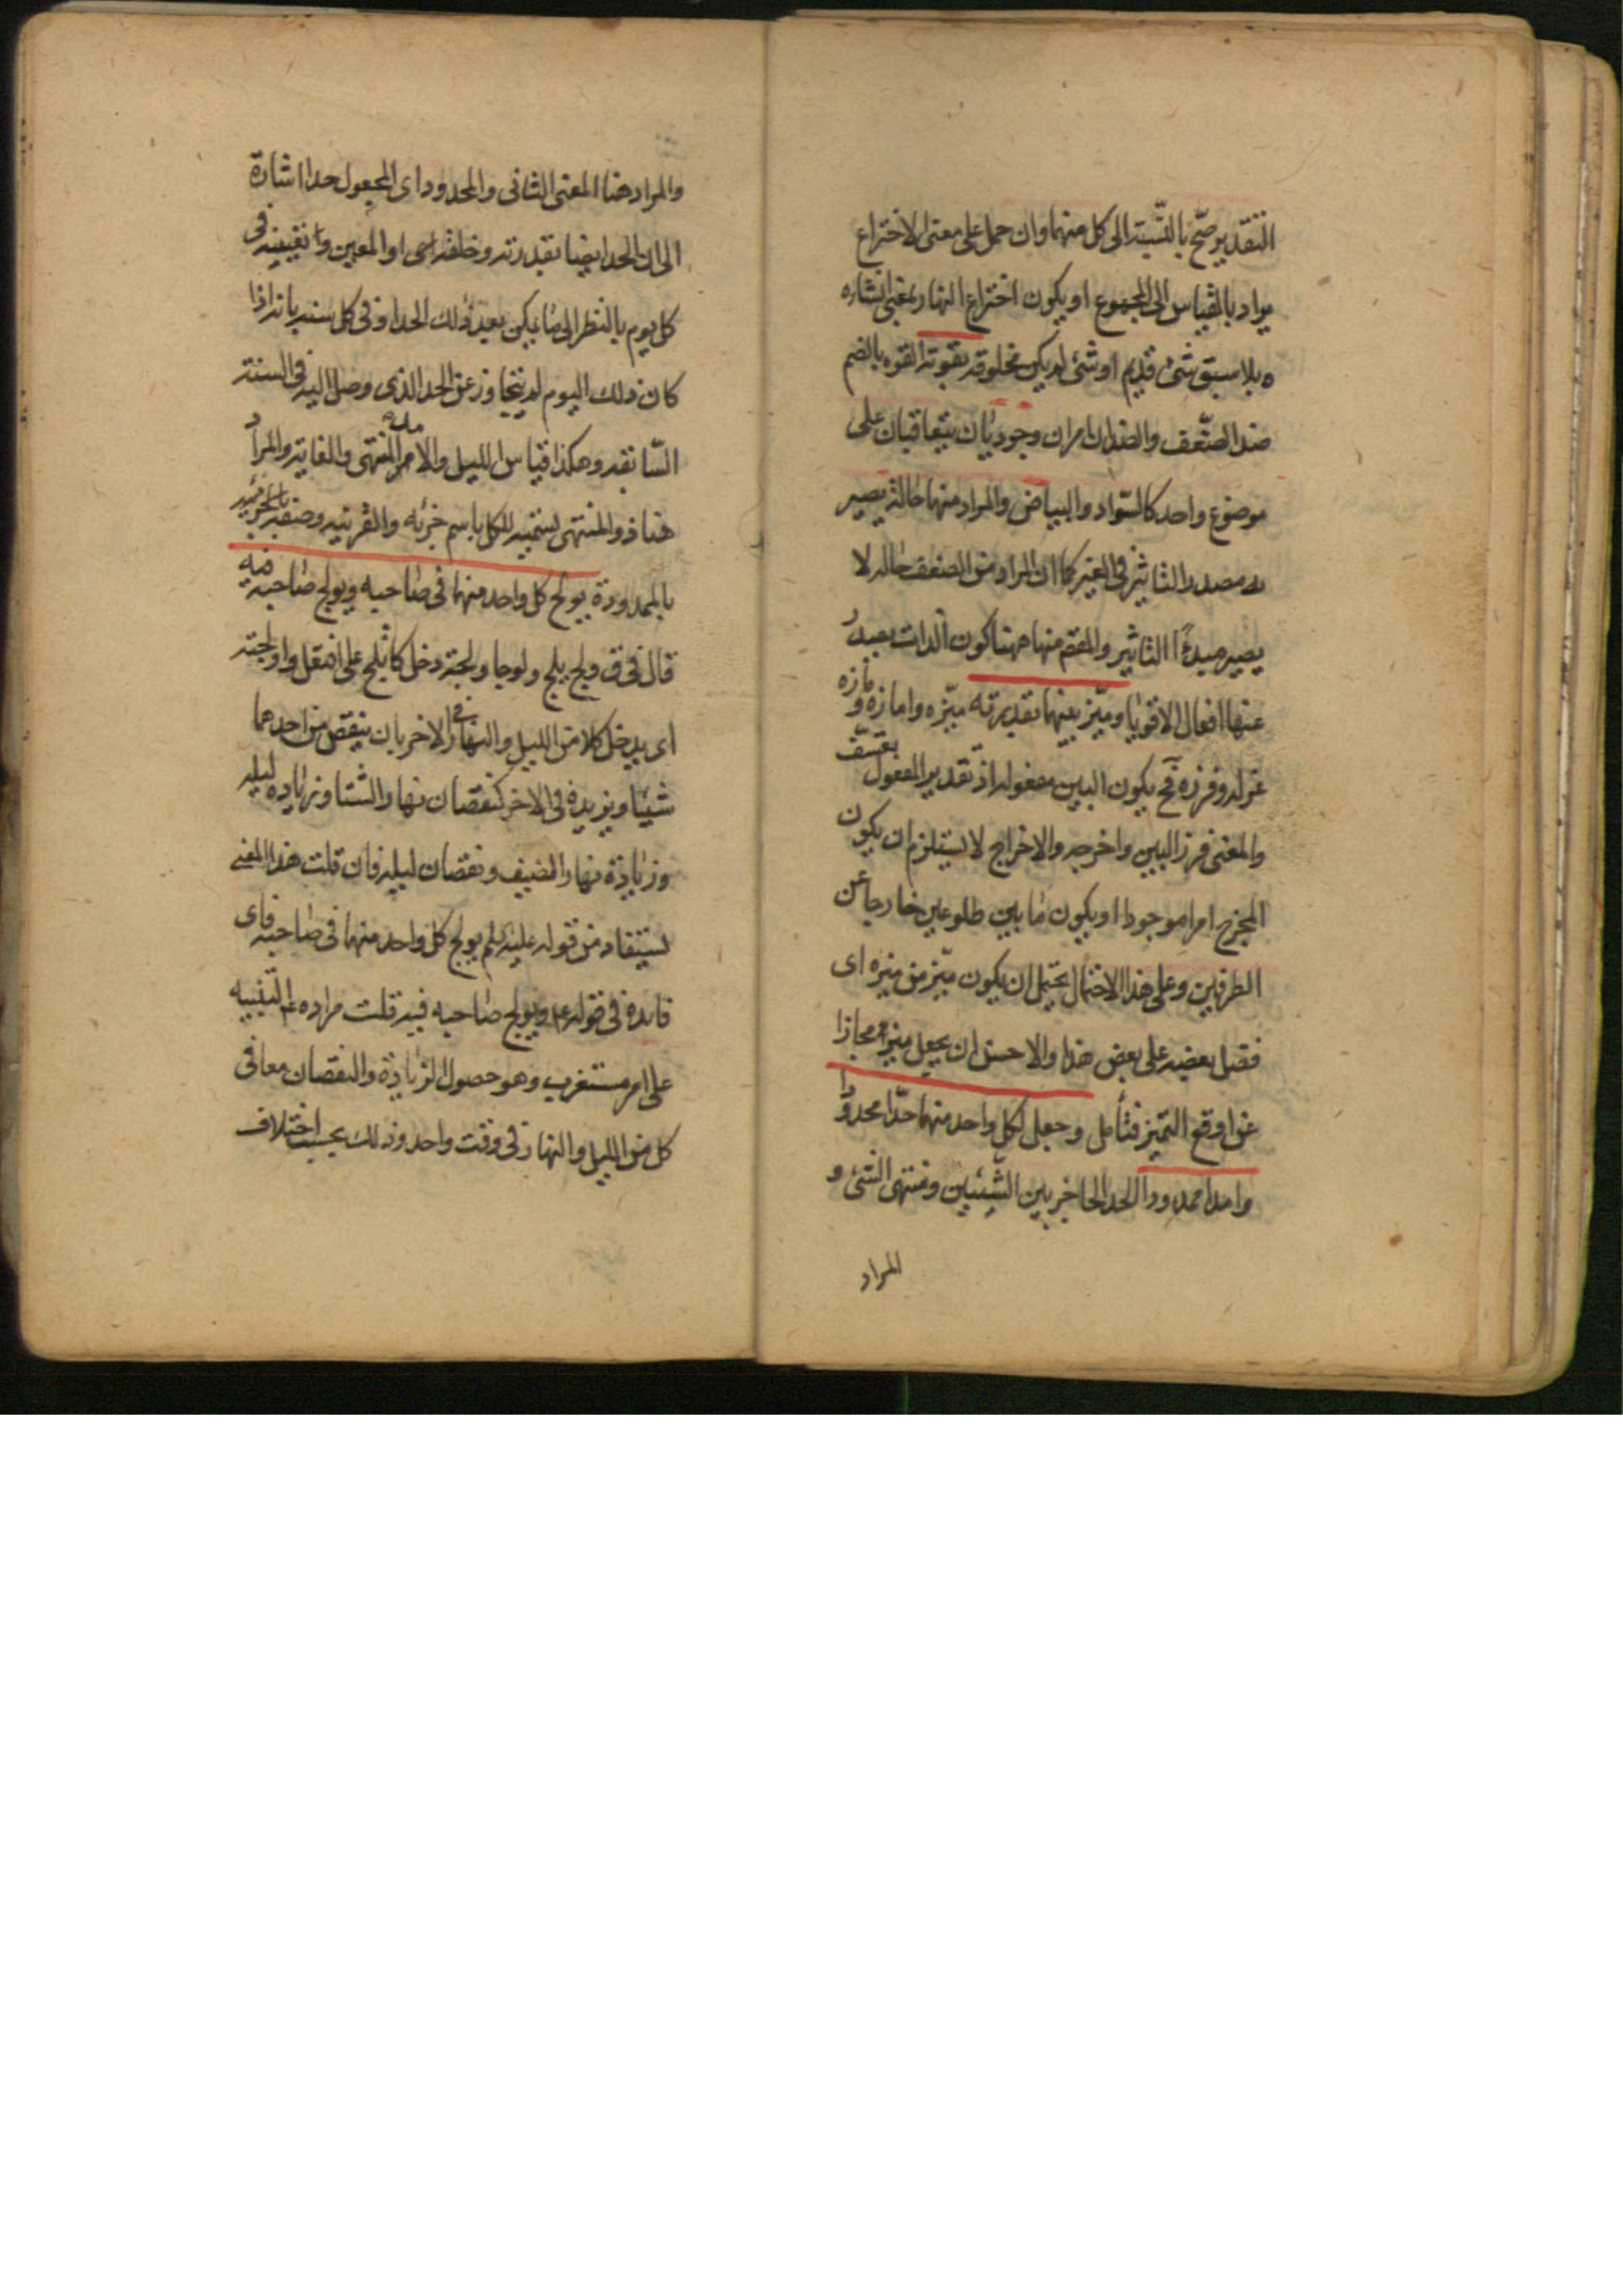 التقدير صحّ بالنّسبة الى كل منهما وان حمل على معنى الاختراع
يراد بالقياس الى المجموع او يكون اختراع النهار بمعنى انشاره
ه بلا سبق شئ قديم او شئ لم يكن مخلوقه بقوته القوه بالضم
ضد الضّعف والضدان امران وجوديّان يتعاقبان على
موضوع واحد كالسّواد والبياض والمراد منها حالة يصير
به مصدر التاثير فى الغير كما ان المراد من الضعف حاله لا
يصير مبدءًا التاثير والمقصم منها ههنا كون الذات بعيدُ
عنها افعال الاقويا وميّز بينهما بقدرته ميّزه وامازه و مازه
عزله وفرزه فح يكون البين مفعوله اذ تقدير المفعول بعسّف
والمعنى فرز البين واخرجه والاخراج لا يستلزم ان يكون
المخرج امرا موجودا او يكون ما بين طلوعين خارجا عن
الطرفين وعلى هذا الاحتمال يحتمل ان يكون ميّز من ميزه اى
فضل بعضه على بعض هذا والاحسن ان يجعل ميز مجازا
عن اوقع التميز فتأمل وجعل لكل واحد منهما حدّا محدودا
وامدا ممدودا الحد الحاجز بين الشّيئين ومنتهى الشئ و
المراد
والمراد هنا المعنى الثانى والمحدود اى المجعول حدا اشارة
الى ان الحد ايضا بقدرته وخلقه اى او المعين وتعيينه فى
كل يوم بالنظر الى ما يمكن بعد ذلك الحد او فى كل سنه بانه اذا
كان ذلك اليوم لم يتجاوز عن الحد الذى وصل اليه فى السنة
السّابقه وهكذا قياس الليل والامد المنتهى والغاية والمراد
هنا ذو المنتهى لتسميه الكل باسم جزئه والقرينه وصفه
بالممدودة يولج كل واحد منهما فى صاحبه ويولج صاحبه فيه
قال فى ق ولج يلج ولوجا ولجة دخل كاتّلج على افتعل واولجته
اى يدخل كلا من الليل والنهار فى الاخر بان ينقص من احدهما
شيئا ويزيده فى الاخر كنقصان نهار الشتا وزياده ليله
وزيادة نهار الصيف ونقصان ليله فان قلت هذا المعنى
يستفاد من قوله عليه السلم يولج كل واحد منهما فى صاحبه فاى
فائدة فى قوله ع ويولج صاحبه فيه قلت مراده ع التنبيه
على امر مستغرب وهو حصول الزيادة والنقصان معا فى
كل من الليل والنهار فى وقت واحد وذلك بحسب اختلاف